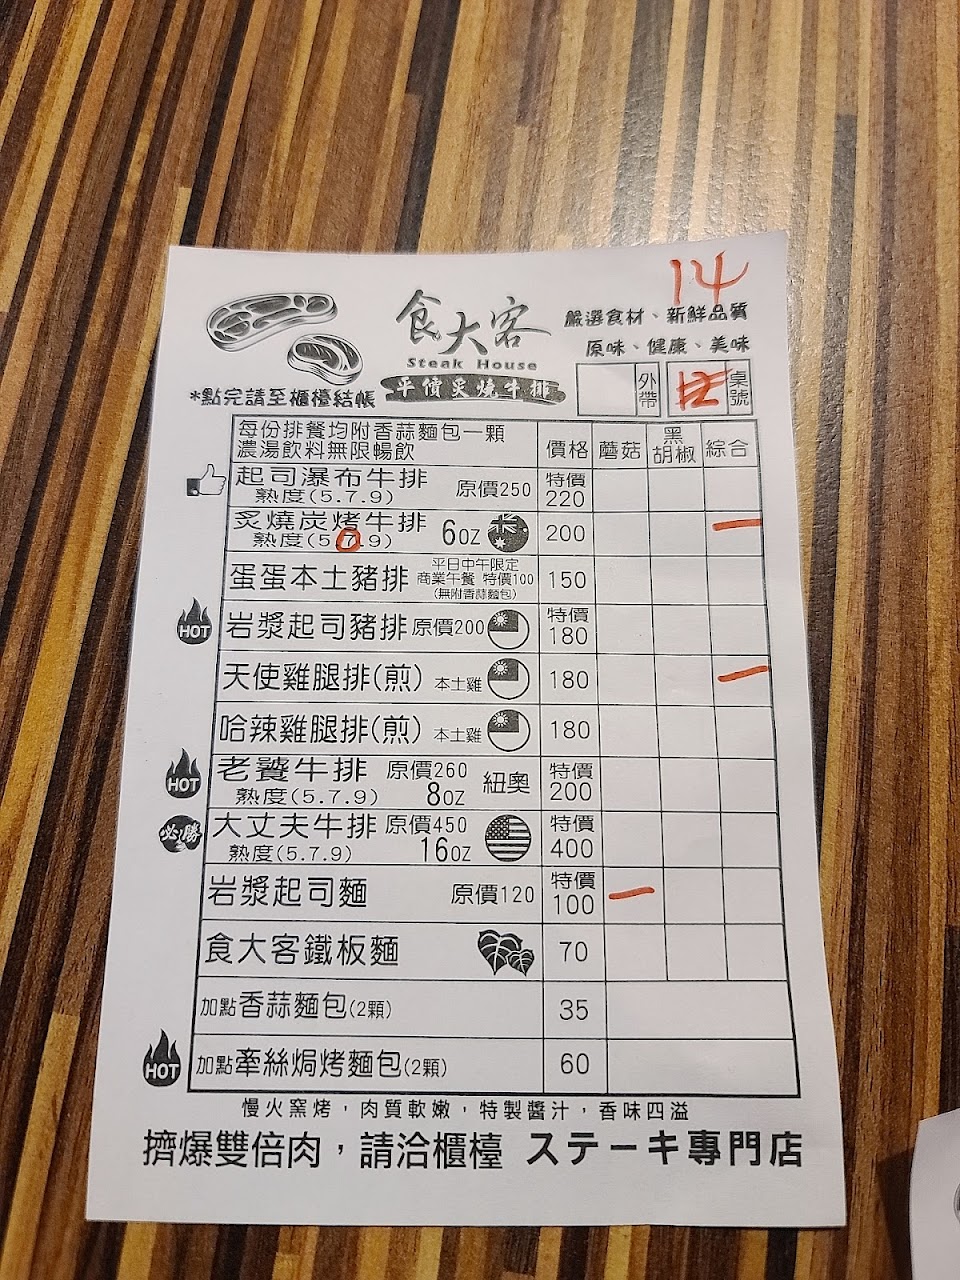 14
食大客
嚴選食材、新鮮品質
Steak House
原味、健康、美味
平價炙燒牛排
*點完請至櫃檯結帳
外帶
桌號
每份排餐均附香蒜麵包一顆
濃湯飲料無限暢飲
價格 蘑菇 黑胡椒 綜合
起司瀑布牛排 原價250 特價220
熟度(5.7.9)
炙燒炭烤牛排 6oz 200
熟度(5.7.9)
蛋蛋本土豬排 平日中午限定 150
商業午餐 特價100
(無附香蒜麵包)
HOT 岩漿起司豬排 原價200 特價180
天使雞腿排(煎) 本土雞 180
哈辣雞腿排(煎) 本土雞 180
HOT 老饕牛排 原價260 紐奧 特價200
熟度(5.7.9) 8oz
必勝 大丈夫牛排 原價450 特價400
熟度(5.7.9) 16oz
岩漿起司麵 原價120 特價100
食大客鐵板麵 70
加點香蒜麵包(2顆) 35
HOT 加點牽絲焗烤麵包(2顆) 60
慢火窯烤，肉質軟嫩，特製醬汁，香味四溢
擠爆雙倍肉，請洽櫃檯 ステーキ專門店